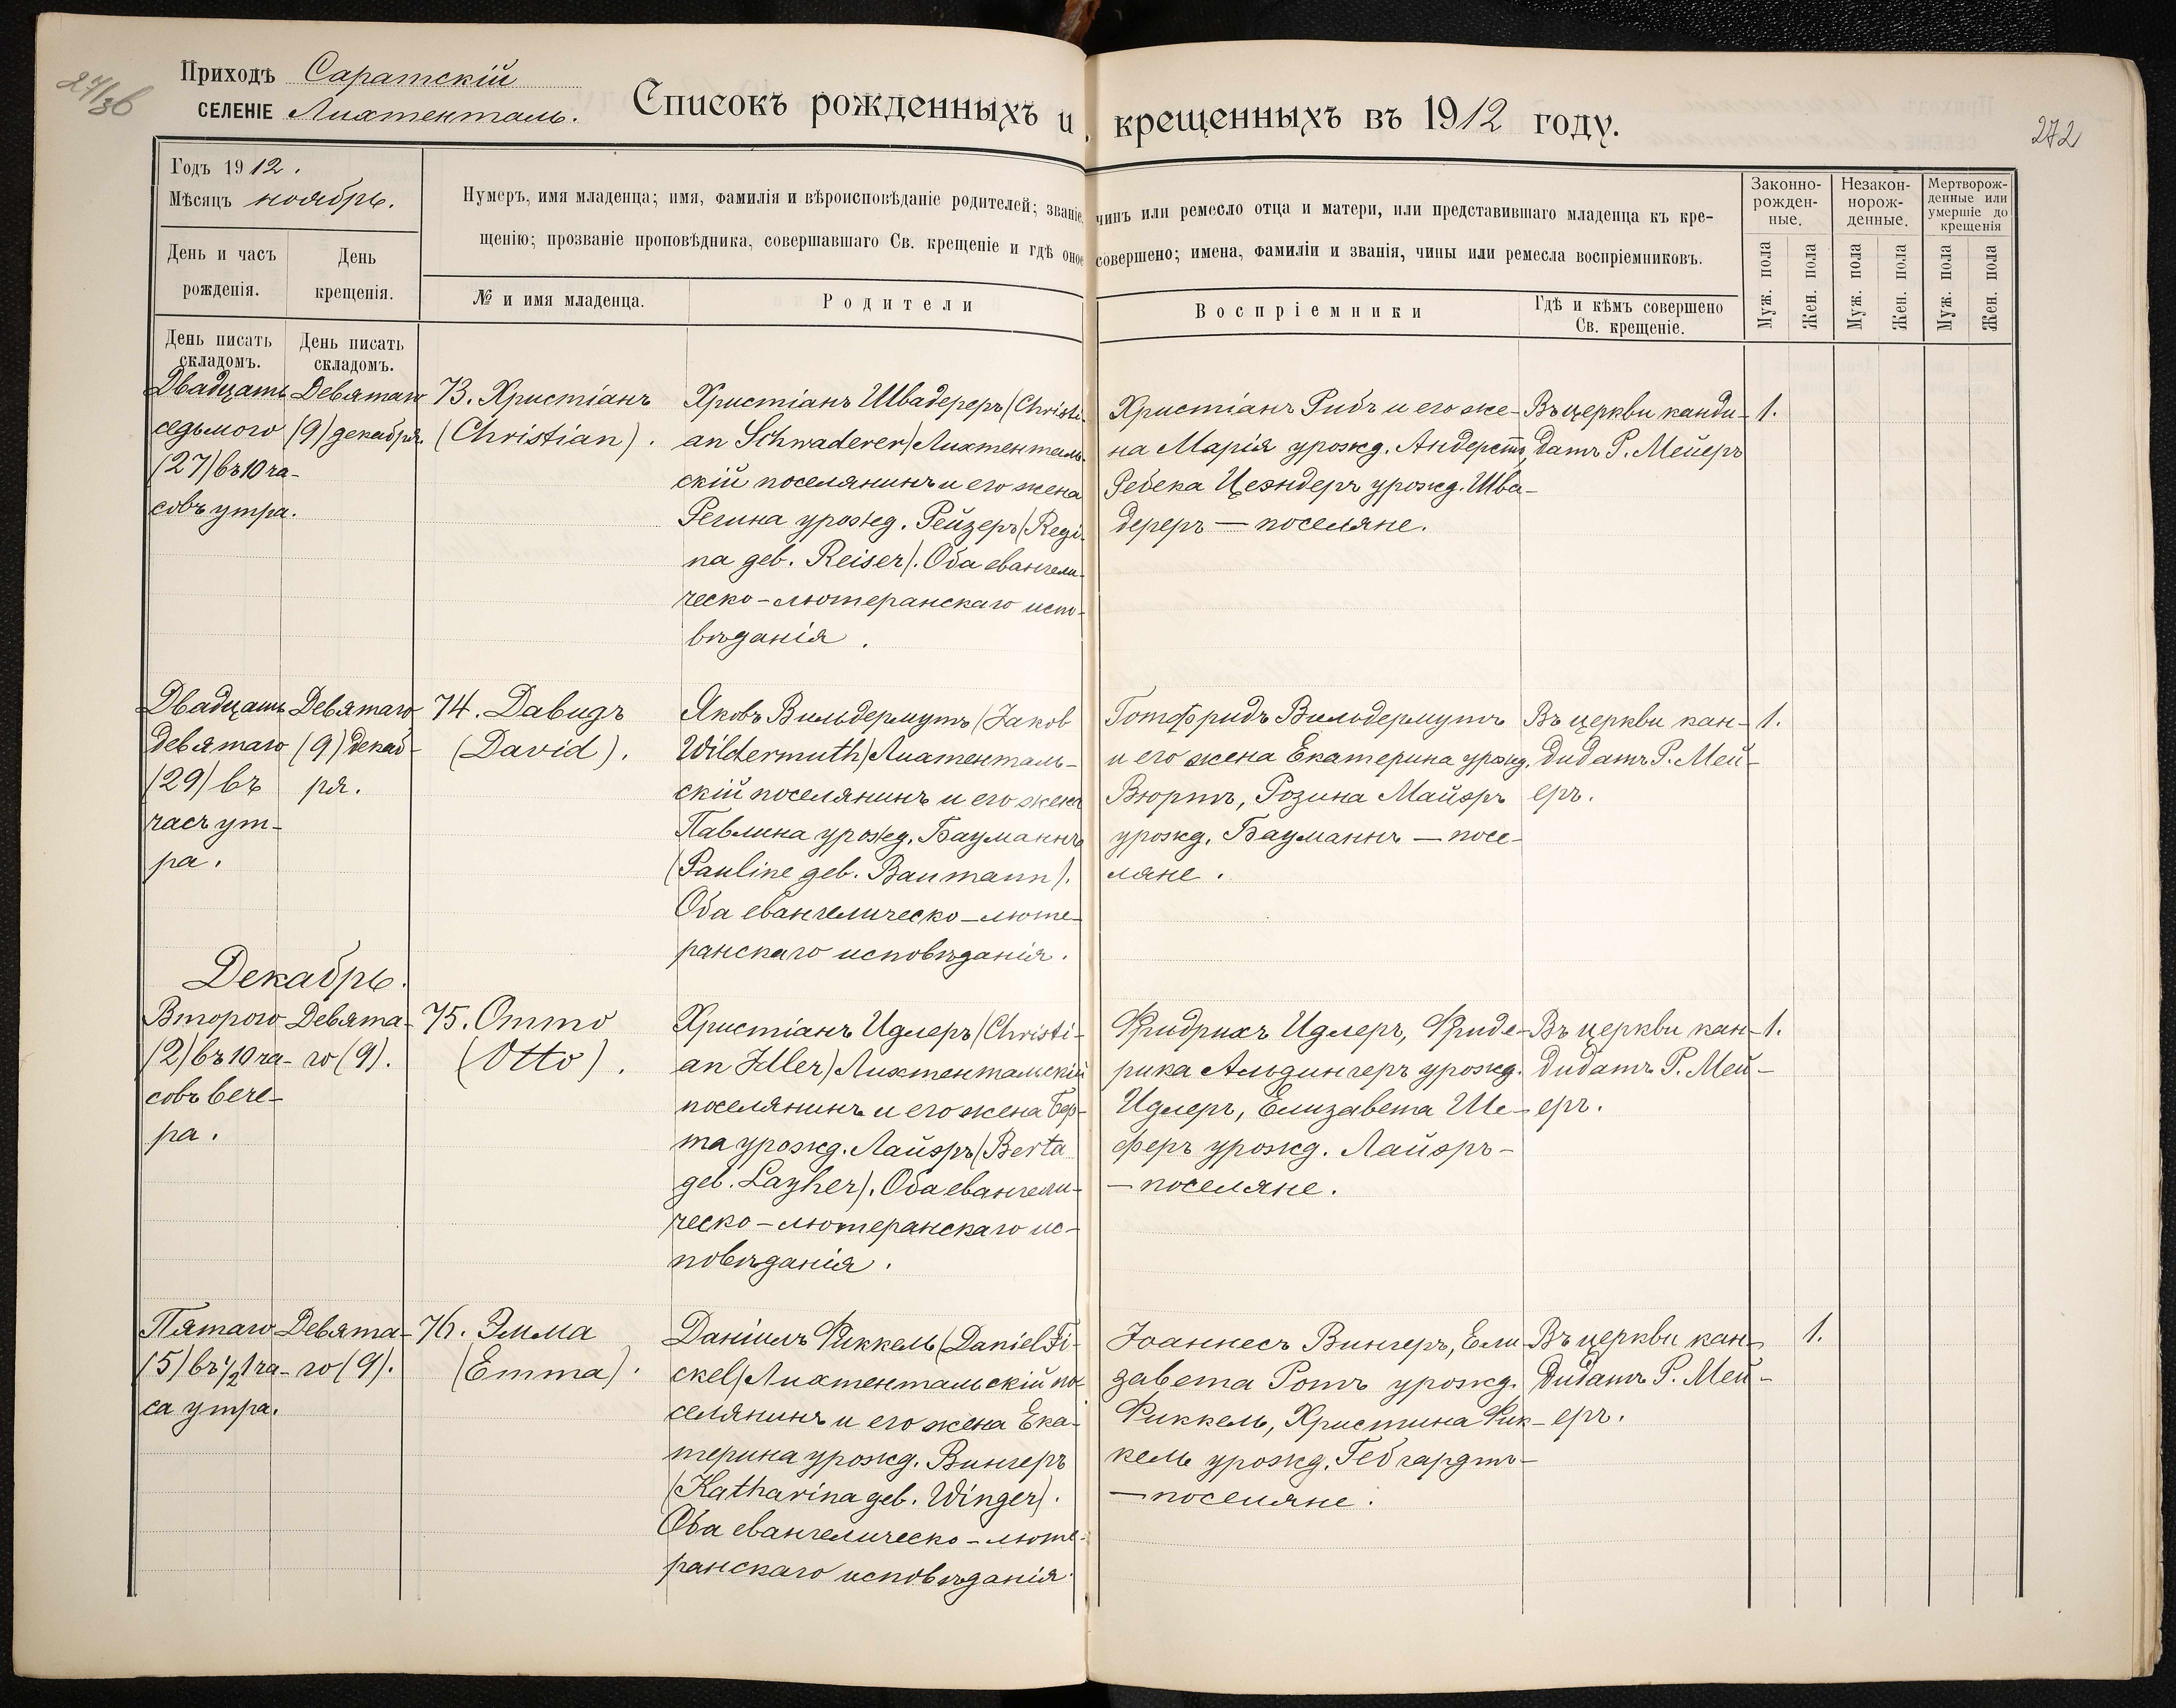 27/36
Приходъ Саратскій
СЕЛЕНІЕ Лихтенталь.
Списокъ рожденныхъ и крещенныхъ въ 1912 году.
272
Годъ 1912.
Мѣсяцъ ноябрь.
День и часъ рожденія.
День крещенія.
Нумеръ, имя младенца; имя, фамилія и вѣроисповѣданіе родителей; званіе, чинъ или ремесло отца и матери, или представившаго младенца къ кре-
щенію; прозваніе проповѣдника, совершавшаго Св. крещеніе и гдѣ оное совершено; имена, фамиліи и званія, чины или ремесла воспріемниковъ.
№ и имя младенца.
Родители
Воспріемники
Гдѣ и кѣмъ совершено
Св. крещеніе.
Законно-
рожден-
ные.
Незакон-
норож-
денные.
Мертворож-
денные или
умершіе до
крещенія
Муж. пола
Жен. пола
Муж. пола
Жен. пола
Муж. пола
Жен. пола
День писать
складомъ.
День писать
складомъ.
Двадцать
седьмого
(27) въ 10 ча-
совъ утра.
Девятаго
(9) декабря.
73. Христіанъ
(Christian).
Христіанъ Швадереръ (Christi-
an Schwaderer) Лихтенталь-
скій поселянинъ и его жена
Регина урожд. Рейзеръ (Regi-
na geb. Reiser). Оба евангели-
ческо-лютеранскаго испо-
вѣданія.
Христіанъ Рибъ и его же-
на Марія урожд. Андерстъ,
Ребека Цеэндеръ урожд. Шва-
дереръ — поселяне.
Въ церкви канди-
датъ Р. Мейеръ
1.
Двадцать
девятаго
(29) въ
часъ ут-
ра.
Девятаго
(9) декаб-
ря.
74. Давидъ
(David).
Яковъ Вильдермутъ (Jakob
Wildermuth) Лихтенталь-
скій поселянинъ и его жена
Павлина урожд. Бауманнъ
(Pauline geb. Baumann).
Оба евангелическо-люте-
ранскаго исповѣданія.
Готфридъ Вильдермутъ
и его жена Екатерина урожд.
Вюртъ, Розина Майэръ
урожд. Бауманнъ — посе-
ляне.
Въ церкви кан-
дидатъ Р. Мей-
еръ.
1.
Декабрь.
Второго
(2) въ 10 ча-
совъ вече-
ра.
Девята-
го (9).
75. Отто
(Otto).
Христіанъ Идлеръ (Christi-
an Idler) Лихтентальскій
поселянинъ и его жена Бер-
та урожд. Лайэръ (Berta
geb. Layher). Оба евангели-
ческо-лютеранскаго ис-
повѣданія.
Фридрихъ Идлеръ, Фриде-
рика Альдингеръ урожд.
Идлеръ, Елизавета Ше-
феръ урожд. Лайэръ-
— поселяне.
Въ церкви кан-
дидатъ Р. Мей-
еръ.
1.
Пятаго
(5) въ ½ 1 ча-
са утра.
Девята-
го (9).
76. Эмма
(Emma).
Даніилъ Фиккель (Daniel Fi-
ckel) Лихтентальскій по-
селянинъ и его жена Ека-
терина урожд. Вингеръ
(Katharina geb. Winger).
Оба евангелическо-люте-
ранскаго исповѣданія.
Іоаннесъ Вингеръ, Ели-
завета Ротъ урожд.
Фиккель, Христина Фик-
кель урожд. Гебгардтъ-
— поселяне.
Въ церкви кан-
дидатъ Р. Мей-
еръ.
1.